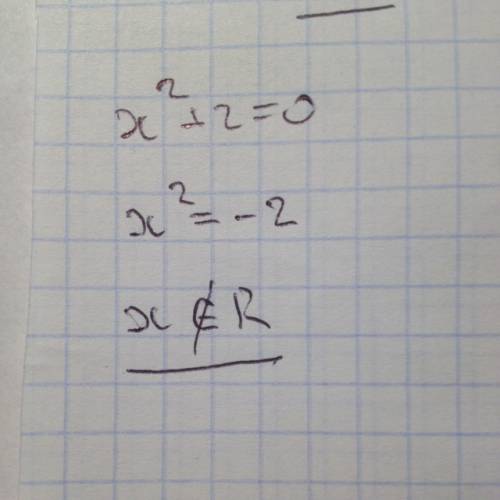 x² + 2 = 0
x² = - 2
x ∉ R